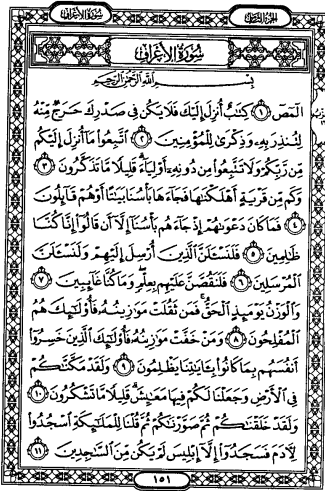 سُورَةُ الأَعۡرَافِ
الجُزۡءُ الثَّامِنُ
سُورَةُ الأَعۡرَافِ
بِسۡمِ ٱللَّهِ ٱلرَّحۡمَٰنِ ٱلرَّحِيمِ
الٓمٓصٓ ١ كِتَٰبٌ أُنزِلَ إِلَيۡكَ فَلَا يَكُن فِي صَدۡرِكَ حَرَجٞ مِّنۡهُ
لِتُنذِرَ بِهِۦ وَذِكۡرَىٰ لِلۡمُؤۡمِنِينَ ٢ ٱتَّبِعُواْ مَآ أُنزِلَ إِلَيۡكُم
مِّن رَّبِّكُمۡ وَلَا تَتَّبِعُواْ مِن دُونِهِۦٓ أَوۡلِيَآءَۗ قَلِيلٗا مَّا تَذَكَّرُونَ ٣
وَكَم مِّن قَرۡيَةٍ أَهۡلَكۡنَٰهَا فَجَآءَهَا بَأۡسُنَا بَيَٰتًا أَوۡ هُمۡ قَآئِلُونَ
٤ فَمَا كَانَ دَعۡوَىٰهُمۡ إِذۡ جَآءَهُم بَأۡسُنَآ إِلَّآ أَن قَالُوٓاْ إِنَّا كُنَّا
ظَٰلِمِينَ ٥ فَلَنَسۡـَٔلَنَّ ٱلَّذِينَ أُرۡسِلَ إِلَيۡهِمۡ وَلَنَسۡـَٔلَنَّ
ٱلۡمُرۡسَلِينَ ٦ فَلَنَقُصَّنَّ عَلَيۡهِم بِعِلۡمٖۖ وَمَا كُنَّا غَآئِبِينَ ٧
وَٱلۡوَزۡنُ يَوۡمَئِذٍ ٱلۡحَقُّۚ فَمَن ثَقُلَتۡ مَوَٰزِينُهُۥ فَأُوْلَٰٓئِكَ هُمُ
ٱلۡمُفۡلِحُونَ ٨ وَمَنۡ خَفَّتۡ مَوَٰزِينُهُۥ فَأُوْلَٰٓئِكَ ٱلَّذِينَ خَسِرُوٓاْ
أَنفُسَهُم بِمَا كَانُواْ بِـَٔايَٰتِنَا يَظۡلِمُونَ ٩ وَلَقَدۡ مَكَّنَّٰكُمۡ
فِي ٱلۡأَرۡضِ وَجَعَلۡنَا لَكُمۡ فِيهَا مَعَٰيِشَۗ قَلِيلٗا مَّا تَشۡكُرُونَ ١٠
وَلَقَدۡ خَلَقۡنَٰكُمۡ ثُمَّ صَوَّرۡنَٰكُمۡ ثُمَّ قُلۡنَا لِلۡمَلَٰٓئِكَةِ ٱسۡجُدُواْ
لِأٓدَمَ فَسَجَدُوٓاْ إِلَّآ إِبۡلِيسَ لَمۡ يَكُن مِّنَ ٱلسَّٰجِدِينَ ١١
١٥١